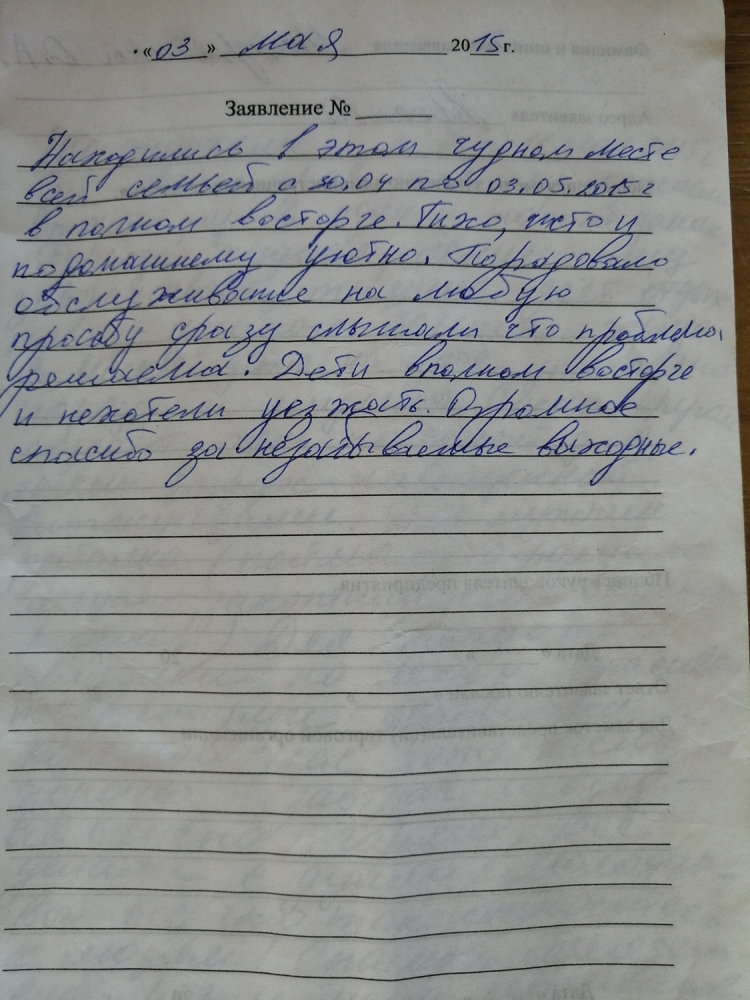 «03» мая 2015 г.
Заявление №
Находились в этом чудном месте
всей семьей с 30.04 по 03.05.2015 г
в полном восторге. Тихо, чисто и
подомашнему уютно. Порадовало
обслуживание на любую
просьбу сразу слышали что проблема
решаема. Дети вполном восторге
и нехотели уезжать. Огромное
спасибо за незабываемые выходные.
Подпись руководителя предприятия